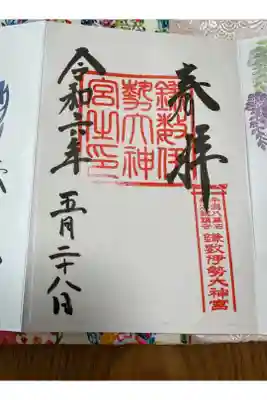 奉拝
干潟八萬石
鎌数伊勢大神宮
鎌数伊
勢大神
宮之印
令和六年
五月二十八日